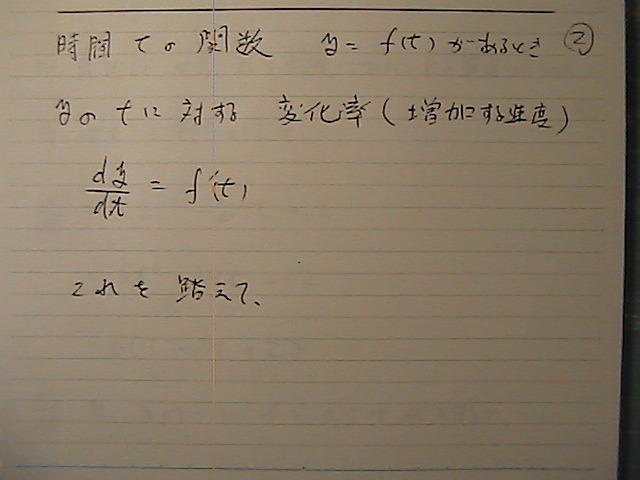 時間 t の 関数 y = f(t) があるとき ②
y の t に 対する 変化率 (増加する速度)
dy/dt = f'(t)
これを 踏えて、